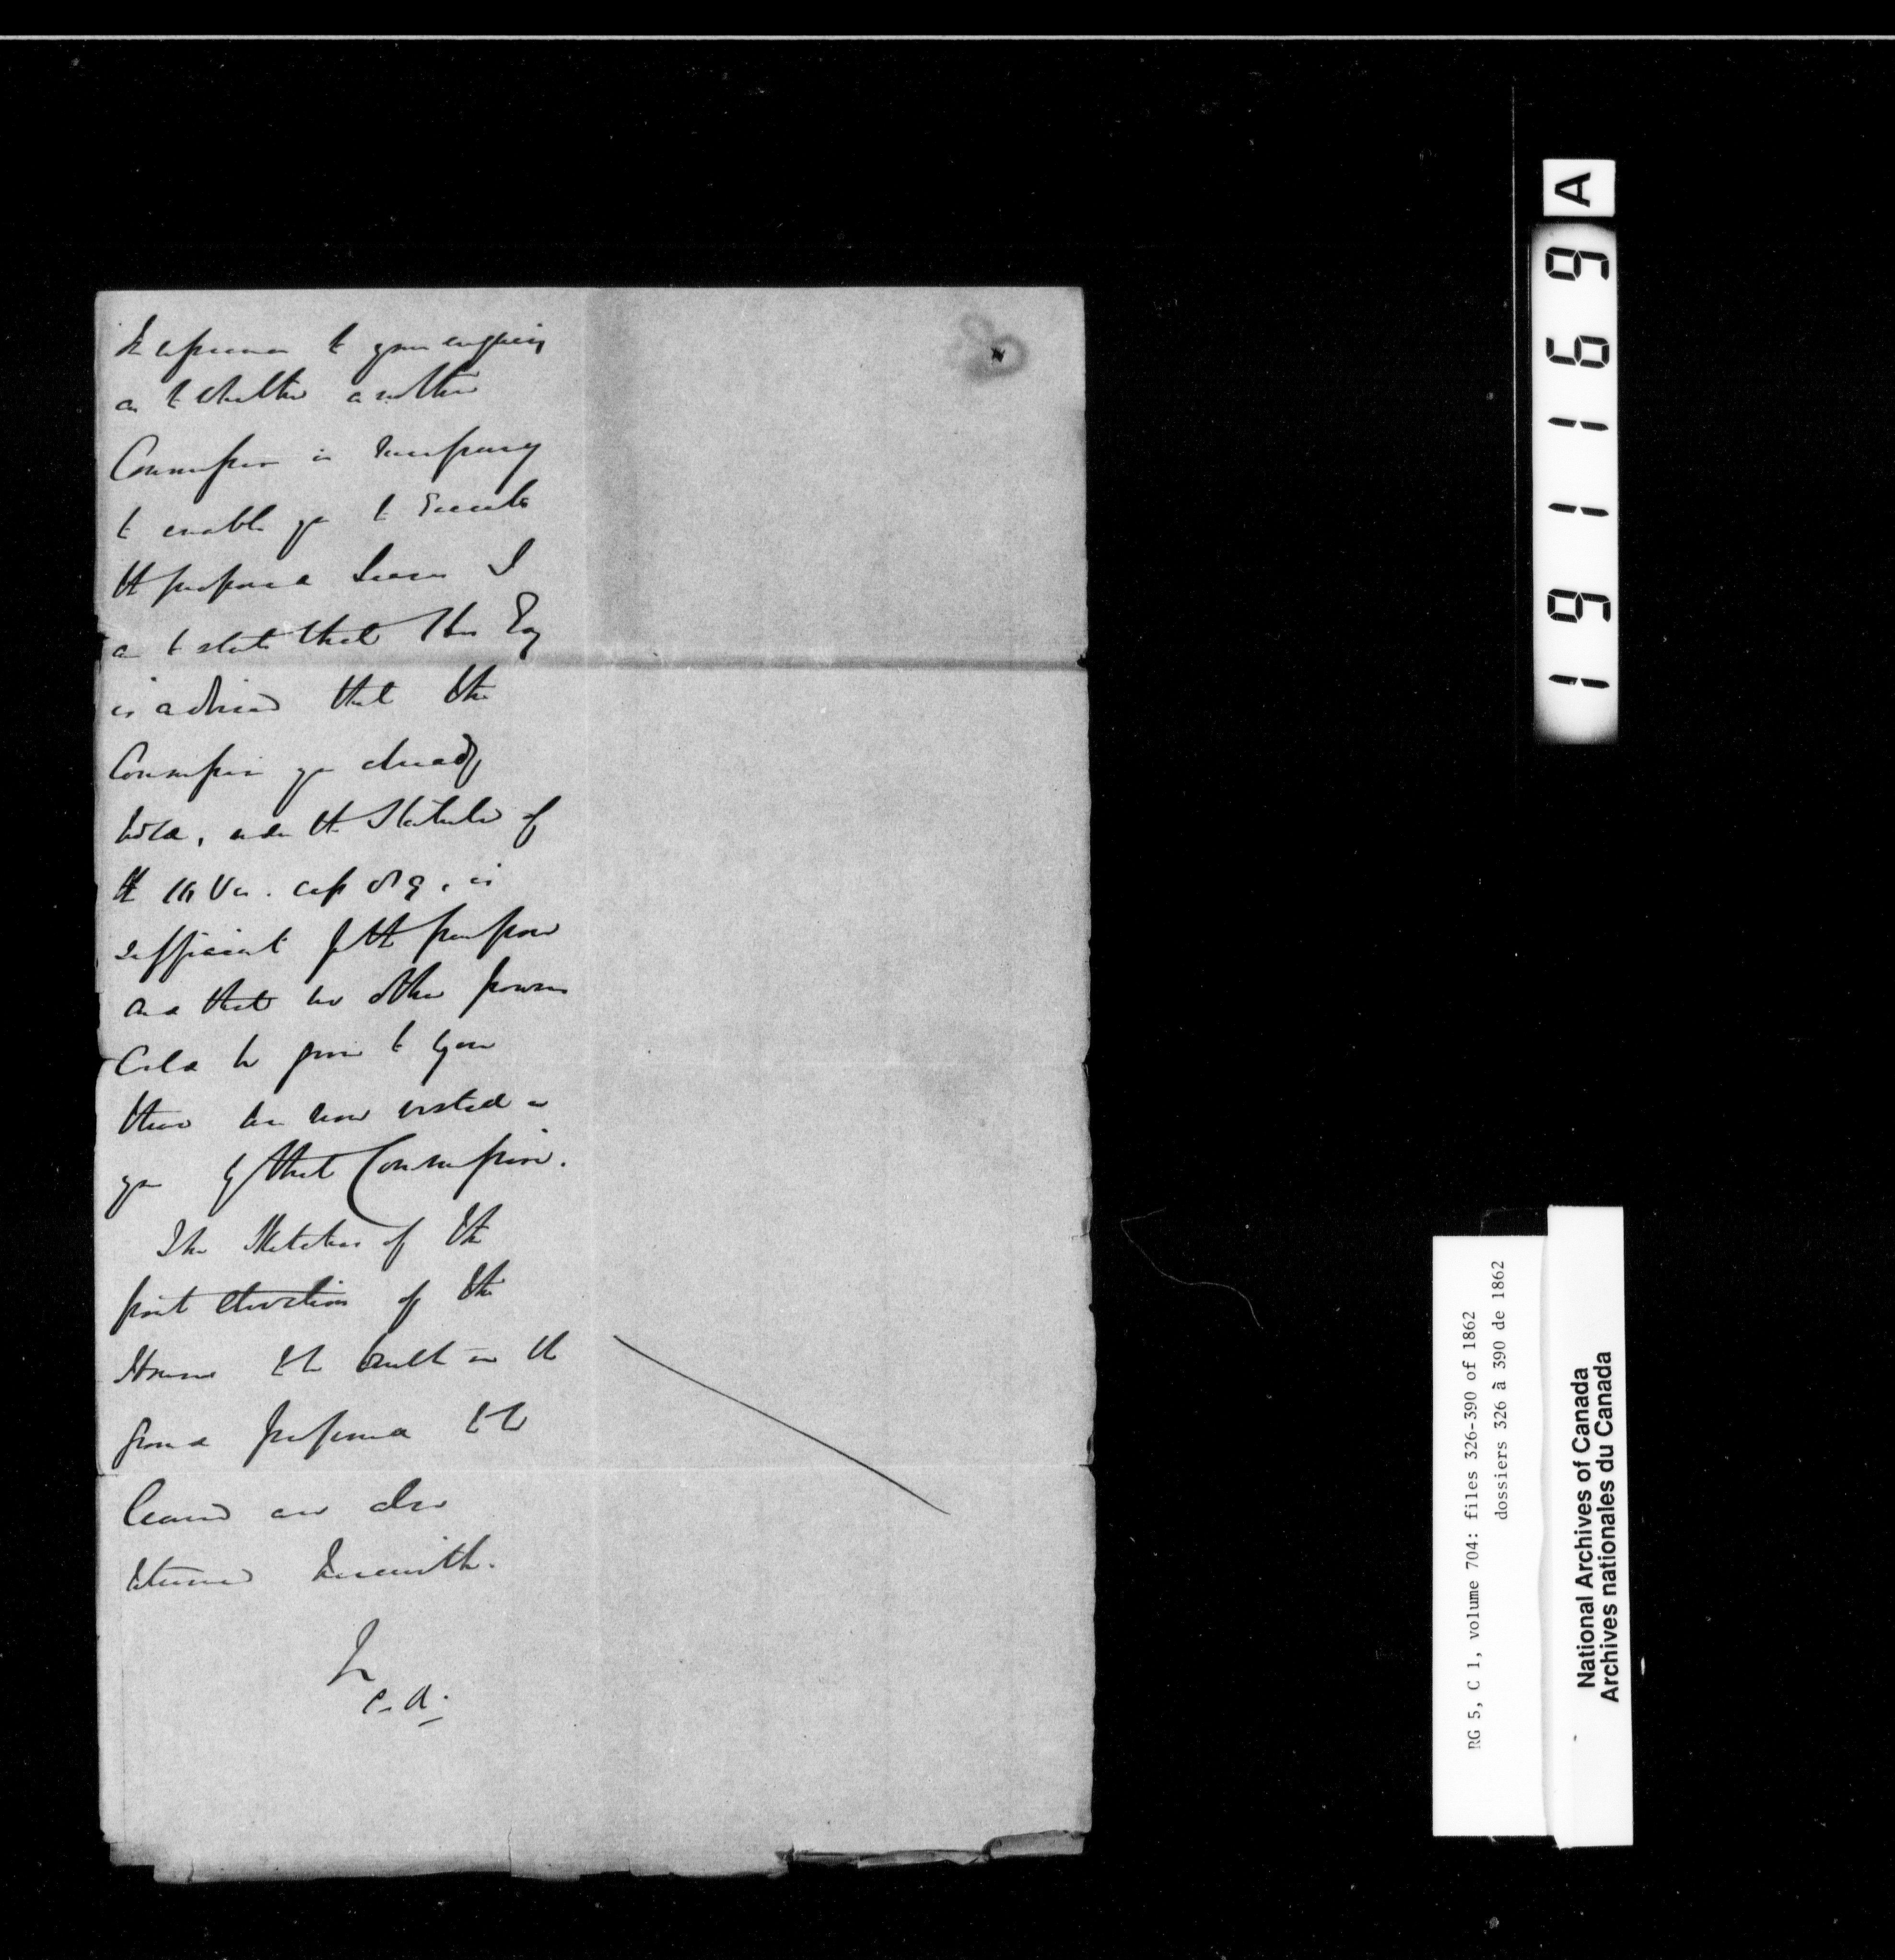 In reference to your enquiry
as to whether another
Commission is necessary
to enable you to execute
the proposed Leases I
am to state that His Exy
is advised that the
Commission you already
hold, under the Statute of
the 16 Vic. cap 159, is
sufficient for the purpose
and that no other powers
could be given to you
than are now vested in
you by that Commission.
The Sketches of the
front elevation of the
Houses to be built on the
ground proposed to be
leased are also
returned herewith.
I
A
1911169
RG 5, C 1, volume 704: files 326-390 of 1862
dossiers 326 à 390 de 1862
National Archives of Canada
Archives nationales du Canada